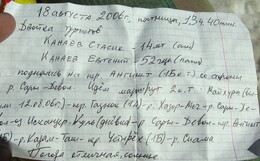 18 августа 2006г, пятница, 13ч 40мин.
Двойка туристов
КАНАЕВ СТАСИК - 14лет (сын)
КАНАЕВ ЕВГЕНИЙ - 52года (папа)
поднялись на пер. АНГИШТ (1Б к.т.) со стороны
р. Сары-Девол. Идём маршрут 2к.т. Майхура
12.08.06г)-пер. -р. -р. Сары-Де-
-оз. Искандер-Куль -р. Сары-Девол-пер. АНГИШТ
-р. Каракуль-пер. Четырёх (1Б)-р. Сиама
Погода отличная, солнце